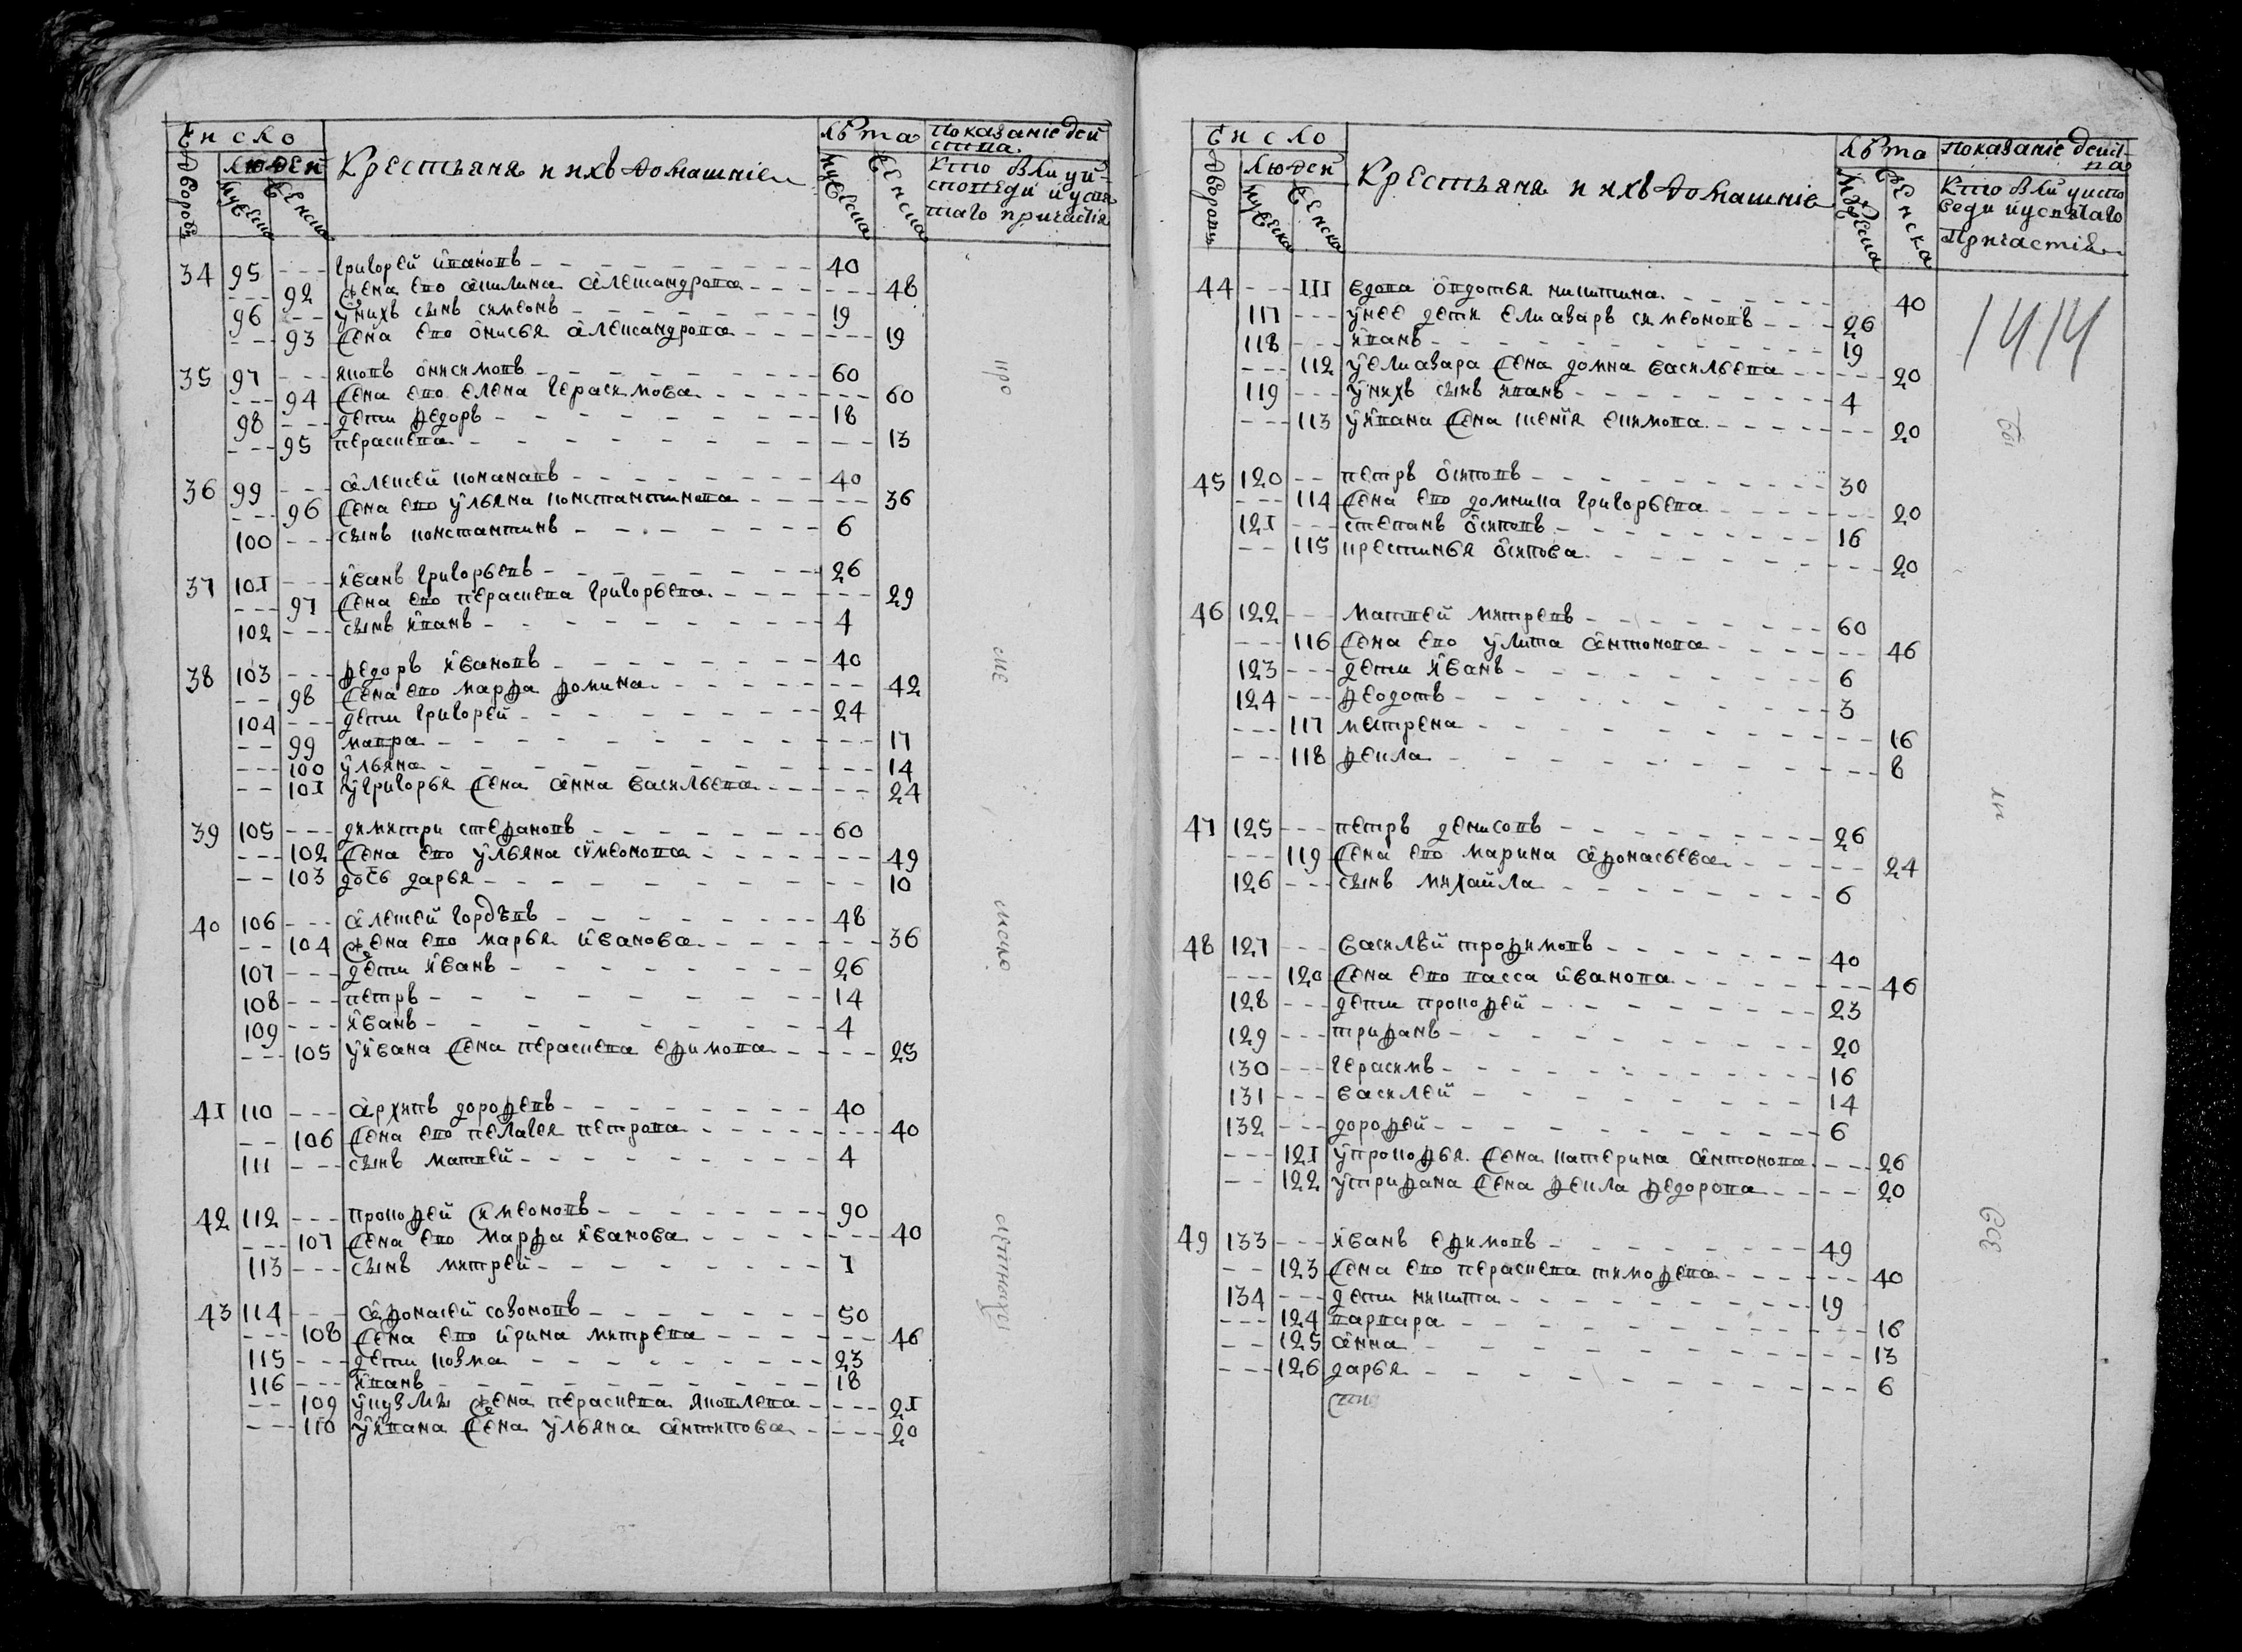 Число
Дворовъ
людей
мужеска
женска
Крестьяня и ихъ домашнiе
лѣта
мужеска
женска
Показанiе дей
ства.
Кто былъ у и
споведи и у свя
таго причастiя
34 95 --- григорей ивановъ --- 40
--- 92 жена ево акилина александрова --- 48
96 --- у нихъ сынъ симеонъ --- 19
--- 93 жена ево онисья александрова --- 19
35 97 --- яковъ онисимовъ --- 60
--- 94 жена ево елена герасимова --- 60
98 --- дети федоръ --- 18
--- 95 пераскева --- 13
36 99 --- алексей конанавъ --- 40
--- 96 жена ево ульяна константинова --- 36
100 --- сынъ константинъ --- 6
37 101 --- иванъ григорьевъ --- 26
--- 97 жена ево пераскева григорьева --- 29
102 --- сынъ иванъ --- 4
38 103 --- федоръ ивановъ --- 40
--- 98 жена ево марфа фомина --- 42
104 --- дети григорей --- 24
--- 99 мавра --- 17
--- 100 ульяна --- 14
--- 101 у григорья жена анна васильева --- 24
39 105 --- димитри стефановъ --- 60
--- 102 жена ево ульяна сѵмеонова --- 49
--- 103 дочь дарья --- 10
40 106 --- алексей гордѣевъ --- 48
--- 104 жена ево марья иванова --- 36
107 --- дети иванъ --- 26
108 --- петръ --- 14
109 --- иванъ --- 4
--- 105 у ивана жена пераскева ефимова --- 25
41 110 --- архипъ дорофевъ --- 40
--- 106 жена ево пелагея петрова --- 40
111 --- сынъ матвей --- 4
42 112 --- прокофей симеоновъ --- 90
--- 107 жена ево марфа иванова --- 40
113 --- сынъ митрей --- 1
43 114 --- афонасей созоновъ --- 50
--- 108 жена ево ирина митрева --- 46
115 --- дети козма --- 23
116 --- иванъ --- 18
--- 109 у кузмы жена пераскева яковлева --- 21
--- 110 у ивана жена ульяна антипова --- 20
Число
Дворовъ
людей
мужеска
женска
Крестьяня и ихъ домашнiе
лѣта
мужеска
женска
Показанiе дейст
ва
Кто былъ у испо
веди и у святаго
Причастiя
1414
44 --- 111 вдова овдотья никитина --- 40
117 --- у нее дети елиазаръ симеоновъ --- 26
118 --- иванъ --- 19
--- 112 у елиазара жена домна васильева --- 20
119 --- у нихъ сынъ иванъ --- 4
--- 113 у ивана жена ксенiя екимова --- 20
45 120 --- петръ осиповъ --- 30
--- 114 жена ево домника григорьева --- 20
121 --- степанъ осиповъ --- 16
--- 115 крестинья осипова --- 20
46 122 --- матвей митревъ --- 60
--- 116 жена ево улита антонова --- 46
123 --- дети иванъ --- 6
124 --- феодотъ --- 3
--- 117 матрена --- 16
--- 118 фекла --- 8
47 125 --- петръ денисовъ --- 26
--- 119 жена ево марина афонасьева --- 24
126 --- сынъ михайла --- 6
48 127 --- василѣй трофимовъ --- 40
--- 120 жена ево васса иванова --- 46
128 --- дети прокофей --- 23
129 --- трифанъ --- 20
130 --- герасимъ --- 16
131 --- василей --- 14
132 --- дорофей --- 6
--- 121 у прокофья жена катерина антонова --- 26
--- 122 у трифана жена фекла федорова --- 20
49 133 --- иванъ ефимовъ --- 49
--- 123 жена ево пераскева тимофева --- 40
134 --- дети никита --- 19
--- 124 варвара --- 16
--- 125 анна --- 13
--- 126 дарья --- 6